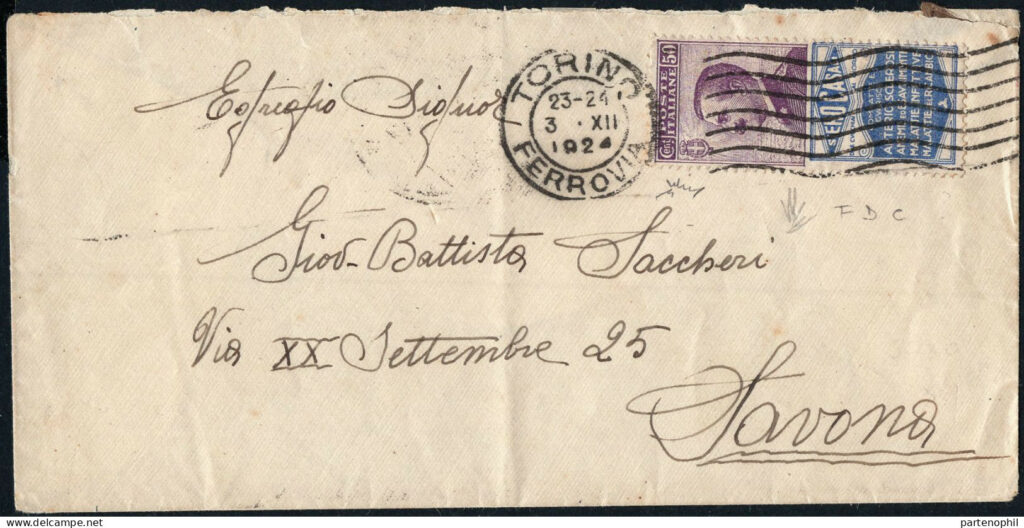 Egregio Signor
TORINO
23-24
3 . XII
1924
FERROVIA
POSTE
ITALIANE
Cent. 50
F D C
Giov. Battista Saccheri
Via XX Settembre 25
Savona
partenophil